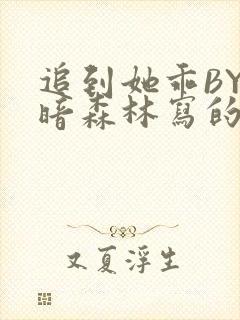 追到她乖BY
暗森林寫的
又夏浮生